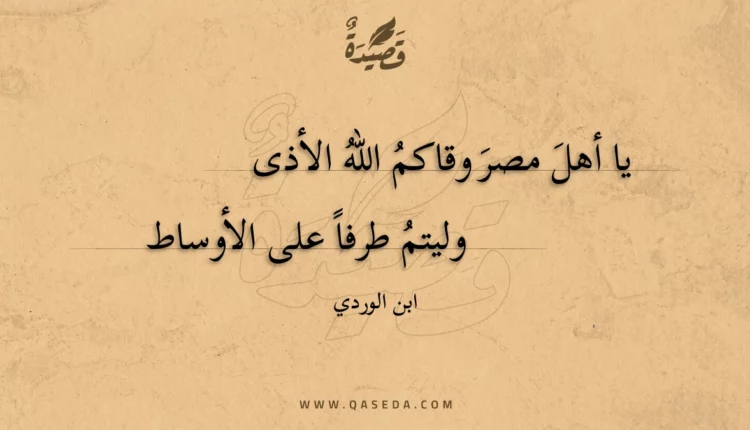 قَصِيدَةٌ
يا أهلَ مصرَ وقاكمُ اللهُ الأذى
وليتمُ طرفاً على الأوساط
ابن الوردي
WWW.QASEDA.COM